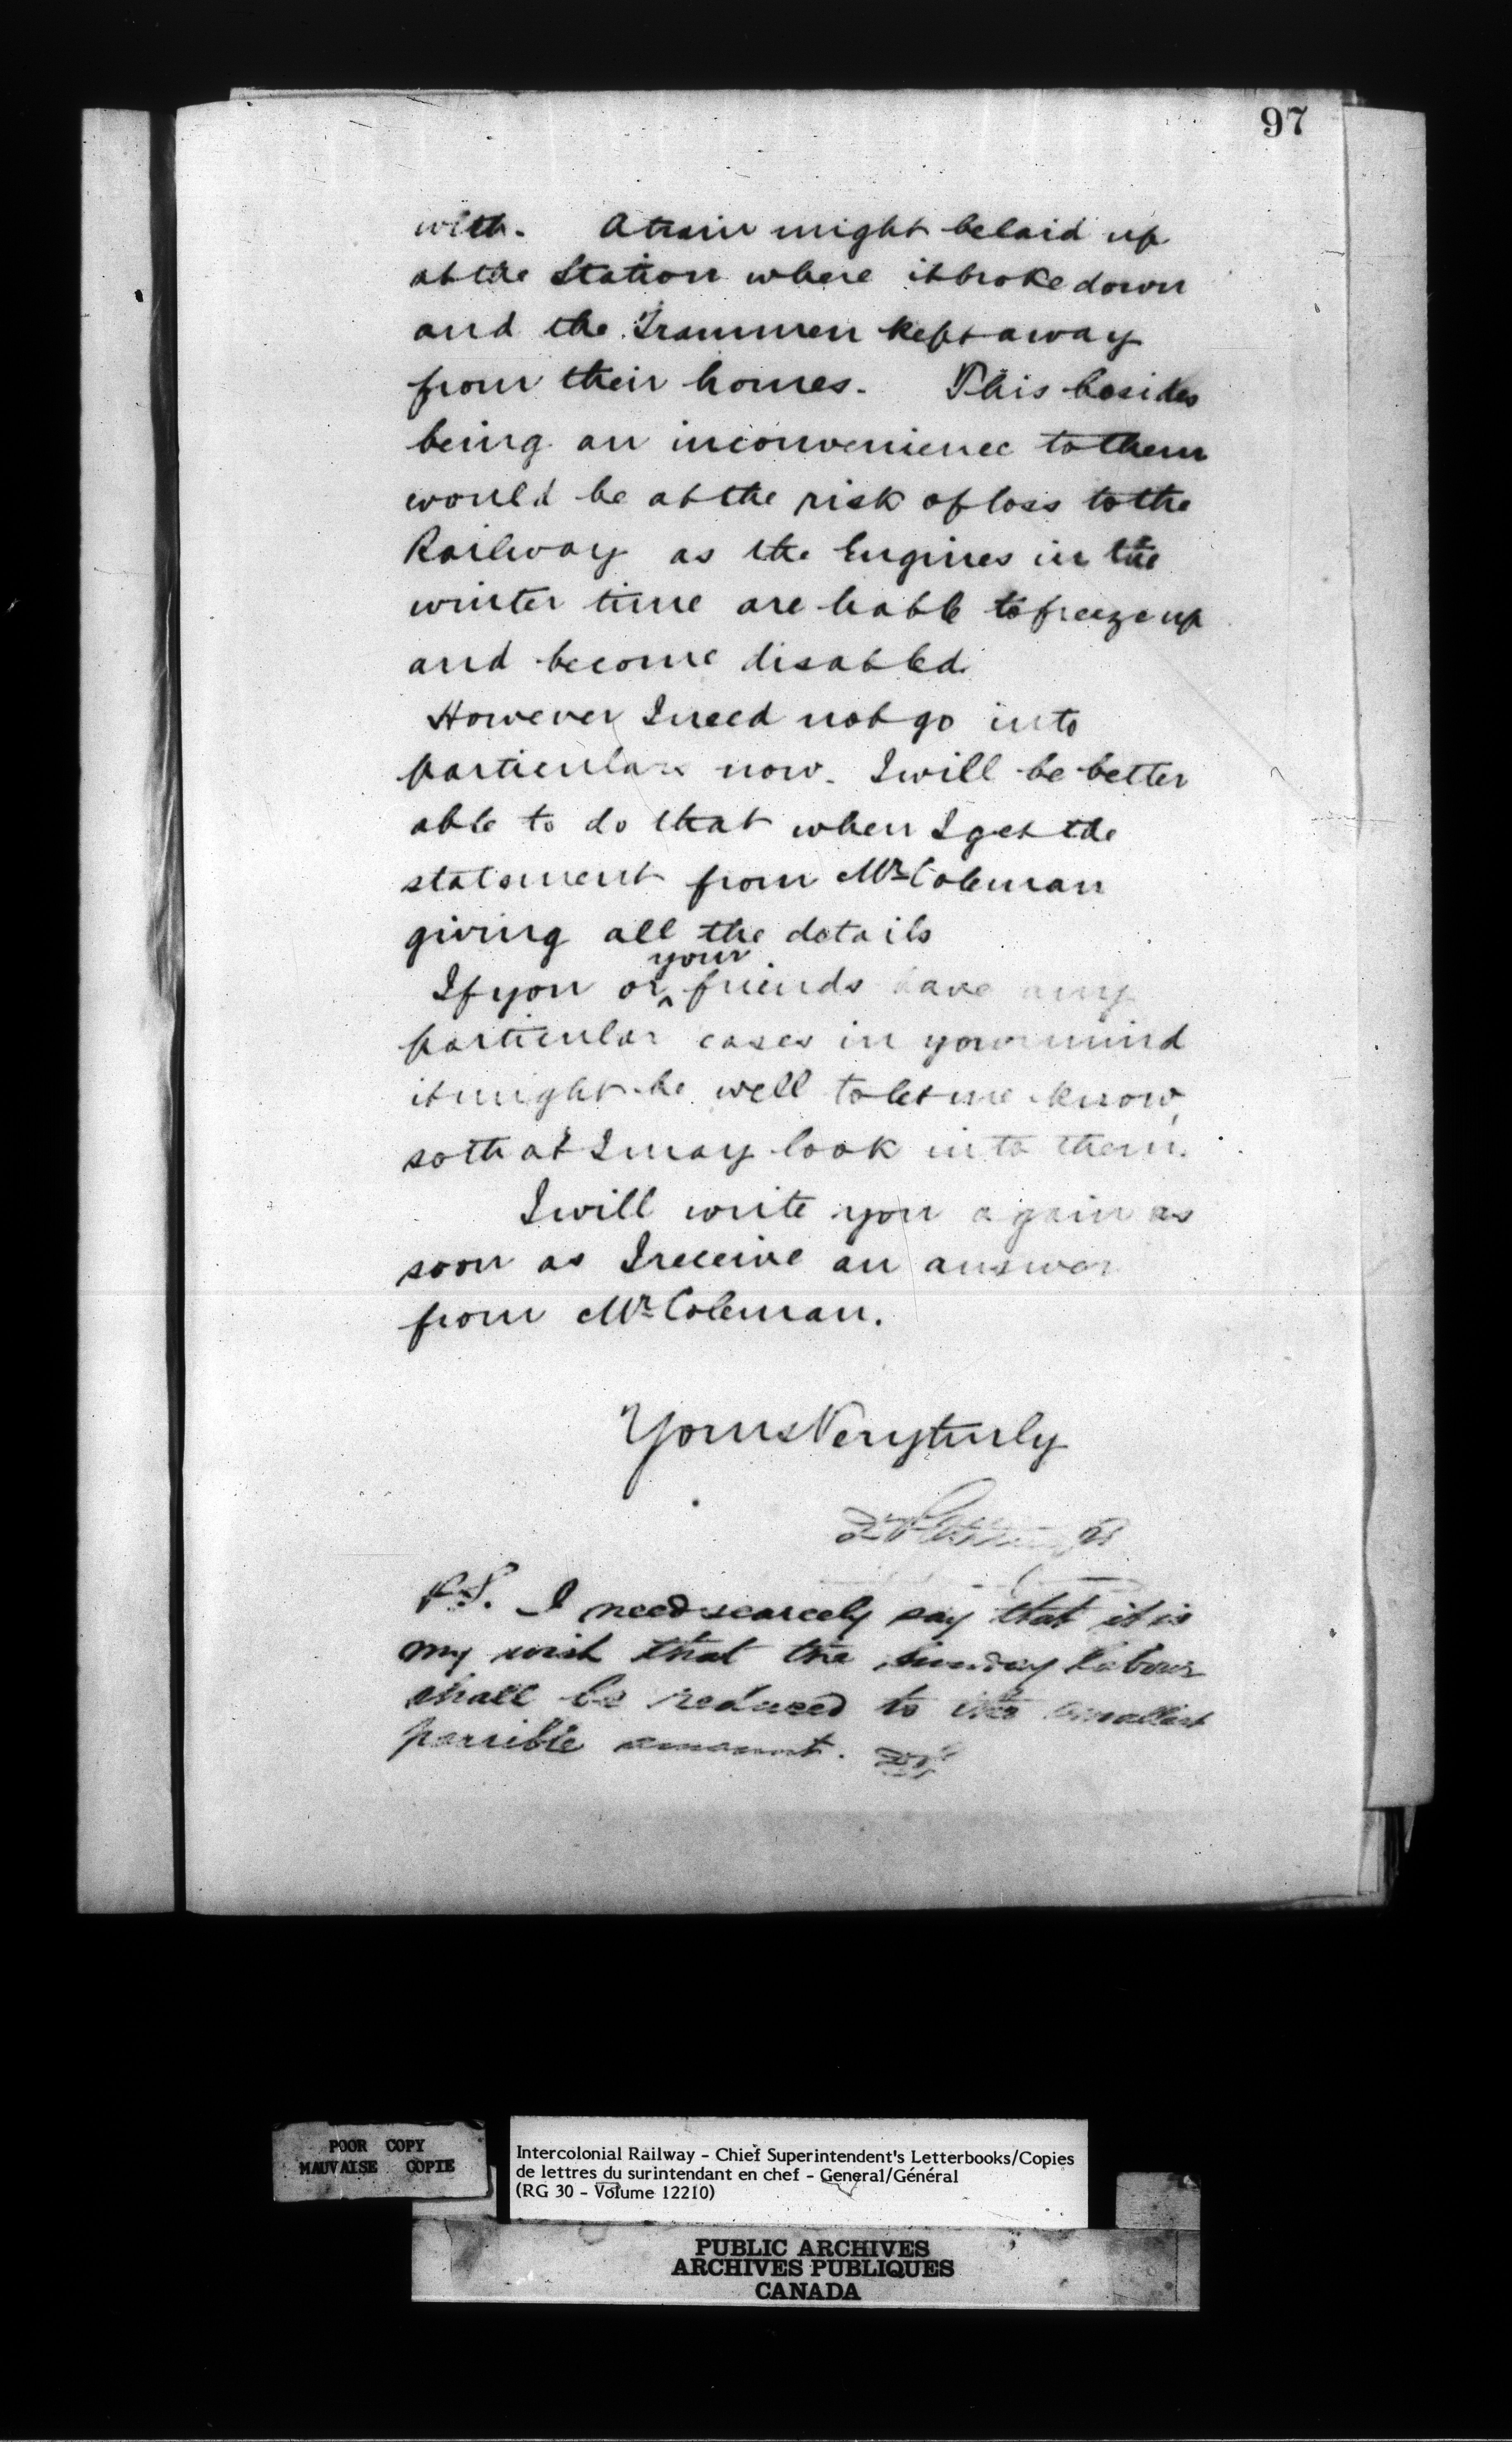 97
with. A train might be laid up
at the Station where it broke down
and the Trainmen kept away
from their homes. This besides
being an inconvenience to them
would be at the risk of loss to the
Railway as the Engines in the
winter time are liable to freeze up
and become disabled.
However I need not go into
particulars now. I will be better
able to do that when I get the
statement from Mr Coleman
giving all the details
your
If you or ^ friends have any
particular cases in your mind
it might be well to let me know,
so that I may look into them.
I will write you again as
soon as I receive an answer
from Mr Coleman.
Yours Very truly
P.S. I need scarcely say that it is
my wish that the Sunday labour
shall be reduced to the smallest
possible amount.
POOR COPY
MAUVAISE COPIE
Intercolonial Railway - Chief Superintendent's Letterbooks/Copies
de lettres du surintendant en chef - General/Général
(RG 30 - Volume 12210)
PUBLIC ARCHIVES
ARCHIVES PUBLIQUES
CANADA